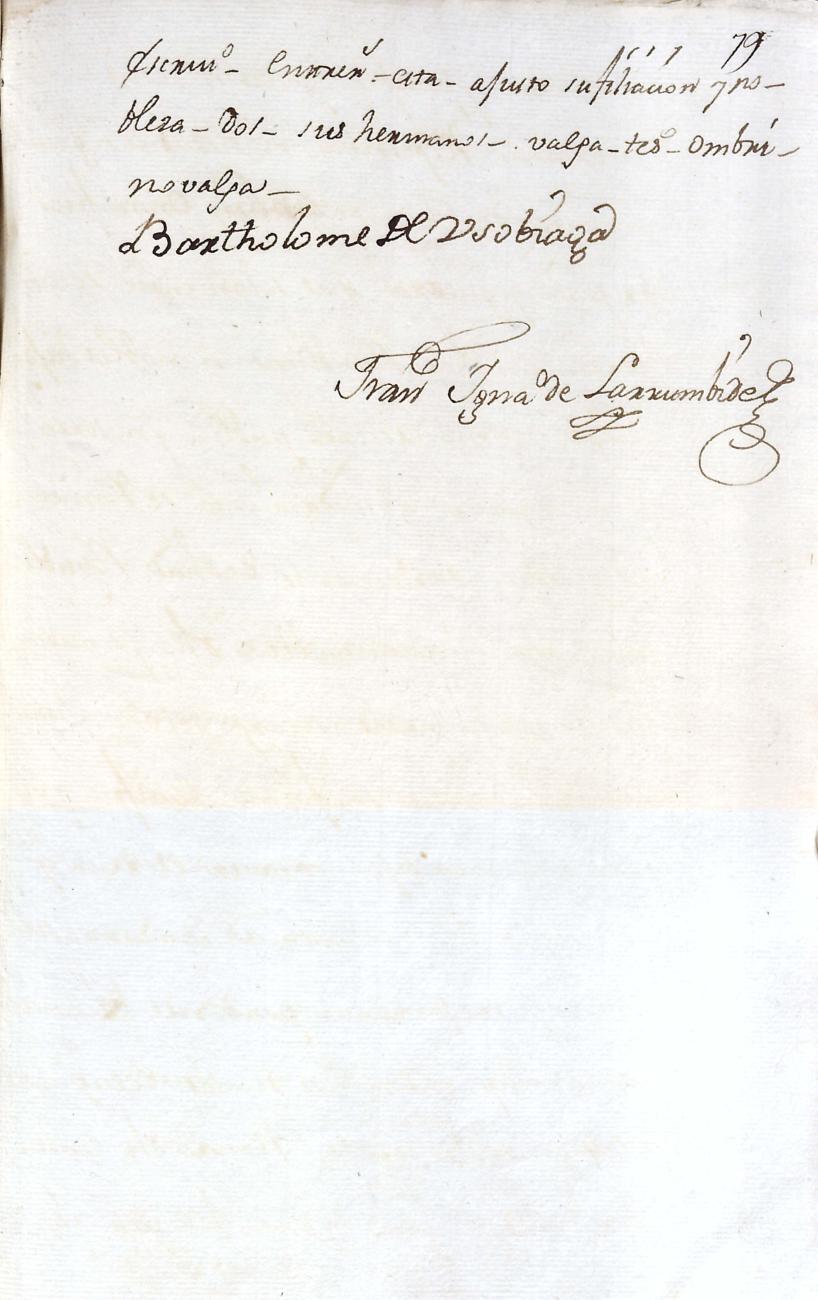 79
Escriu.º – Enttrerr.s – esta – ajusto su filiacion y no–
bleza – Dos – sus hermanos – valga – tesº – ombri –
no valga –
Bartholome De Vsobiaga
Fran.co Ignaº de Larrumbide